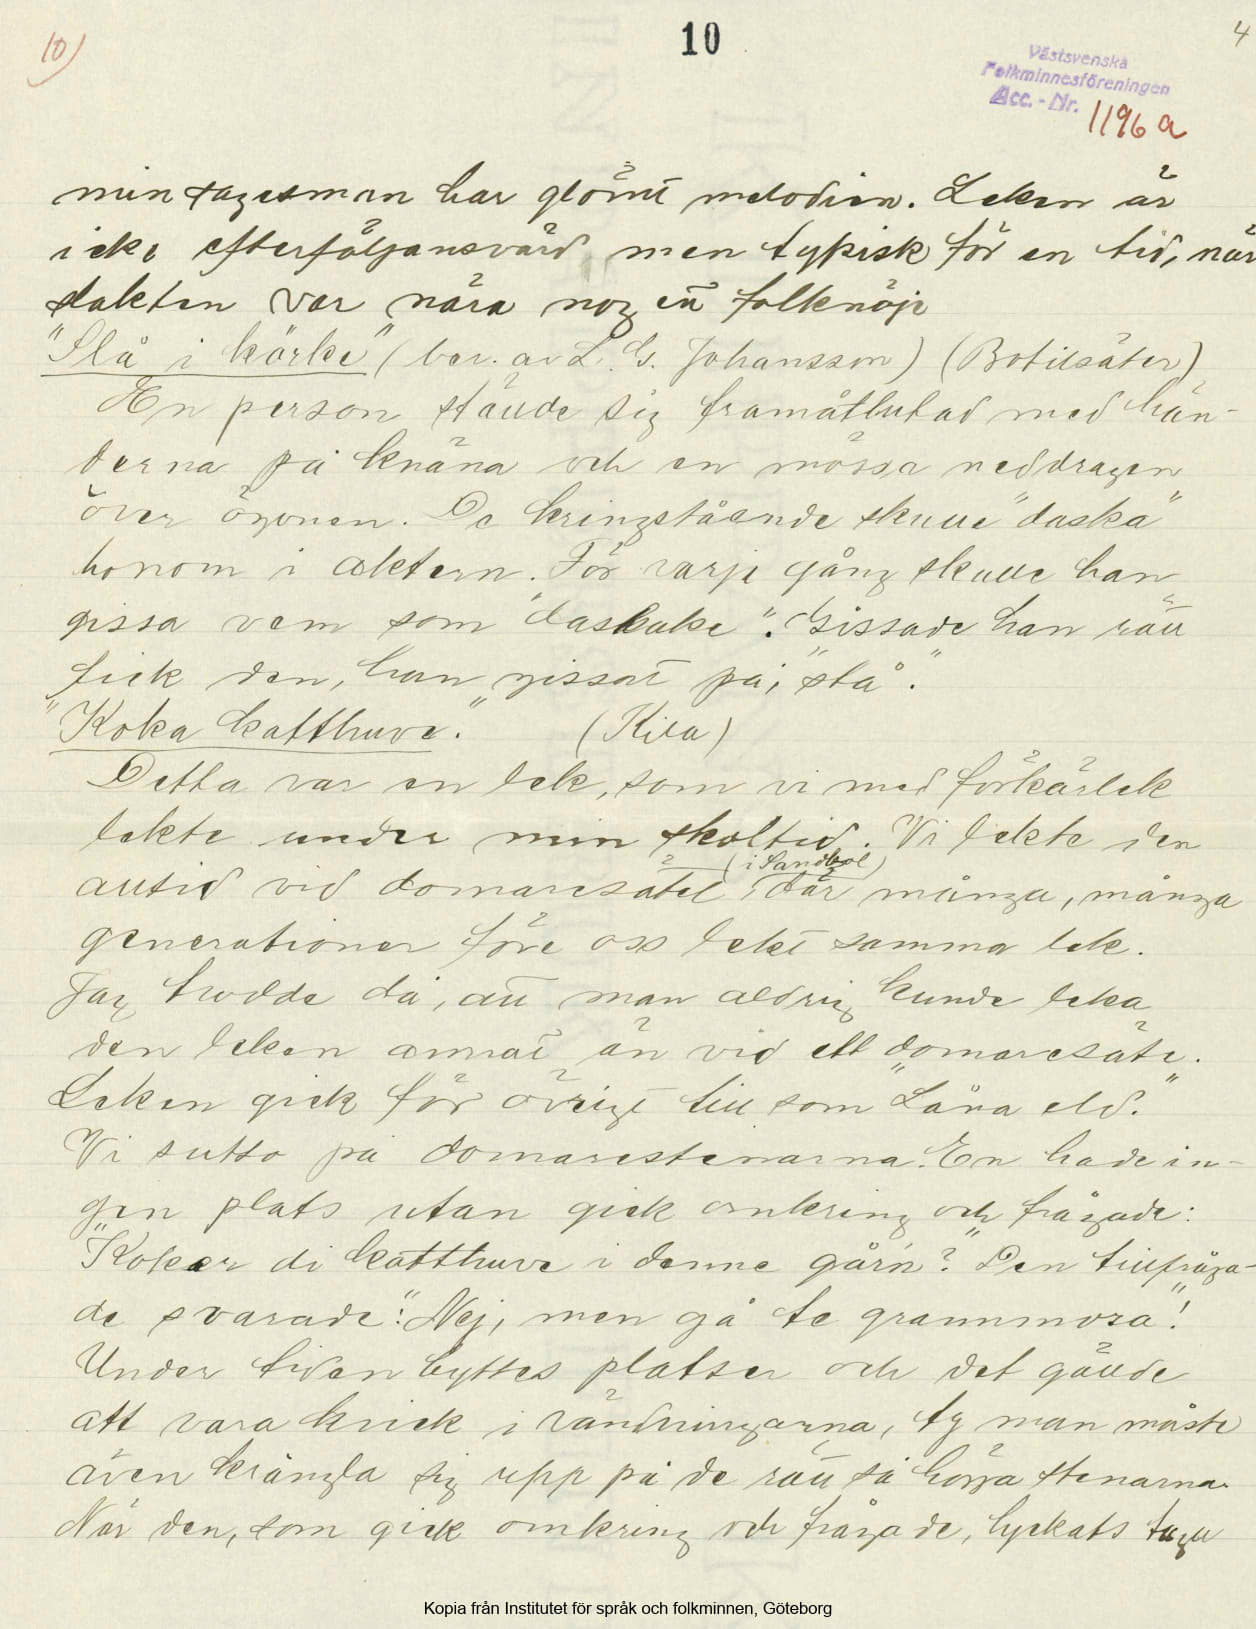 10)
10
4
Västsvenska
Folkminnesföreningen
Acc. - Nr. 1196 a
min sagesman har glömt melodien. Leken är
icke efterföljansvärd men typisk för en tid, när
slakten var nära nog ett folknöje
"Slå i körke" (ber. av L. G. Johansson) (Botilsäter)
En person ställde sig framåtlutad med hän-
derna på knäna och en mössa neddragen
över ögonen. De kringstående skulle "daska"
honom i aktern. För varje gång skulle han
gissa vem som "daskake". Gissade han rätt
fick den, han gissat på, "stå".
"Koka katthuve." (Kila)
Detta var en lek, som vi med förkärlek
lekte under min skoltid. Vi lekte den
(i Sandbol)
alltid vid domaresätet, där många, många
generationer före oss lekt samma lek.
Jag trodde då, att man aldrig kunde leka
den leken annat än vid ett domaresäte.
Leken gick för övrigt till som "Låna eld."
Vi sutto på domarestenarna. En hade in-
gen plats utan gick omkring och frågade:
"Koker di katthuve i denne går'n?" Den tillfråga-
de svarade: "Nej, men gå te grannmora"!
Under tiden byttes platser och det gällde
att vara kvick i vändningarna, ty man måste
även krångla sig upp på de rätt så höga stenarna.
När den, som gick omkring och frågade, lyckats taga
Kopia från Institutet för språk och folkminnen, Göteborg